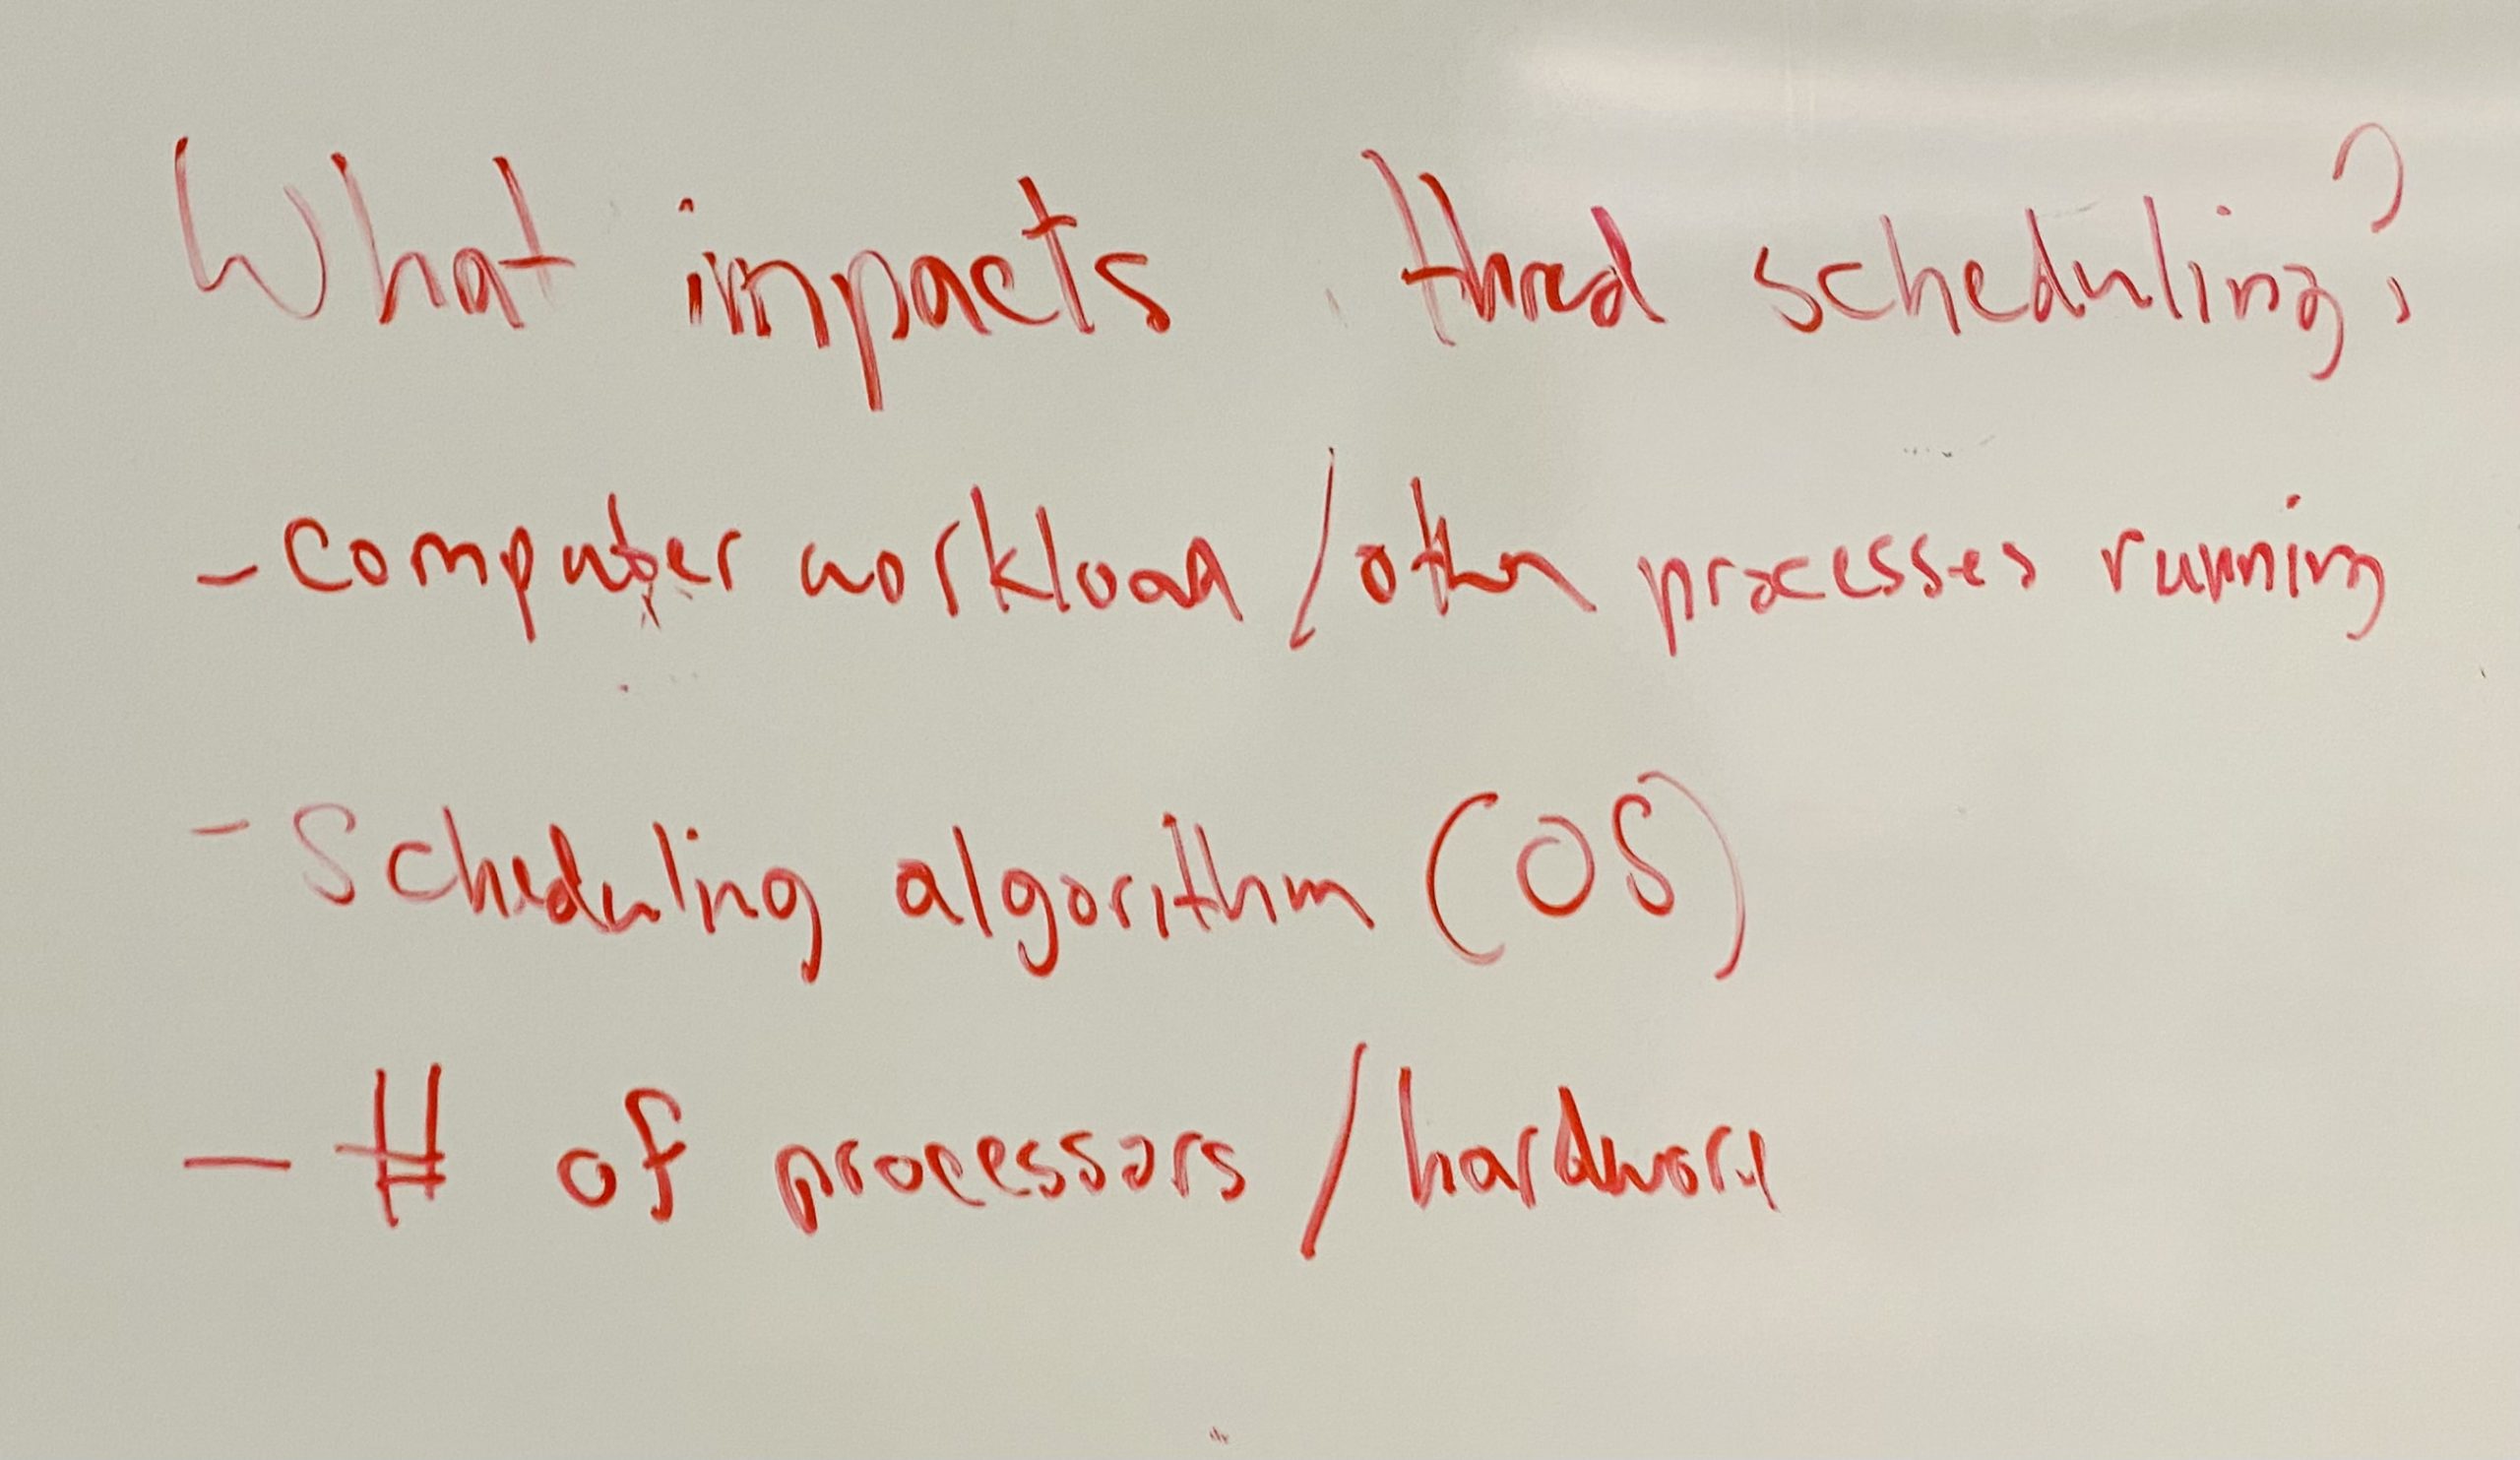 What impacts thread scheduling?
- Computer workload / other processes running
- Scheduling algorithm (OS)
- # of processors / hardware